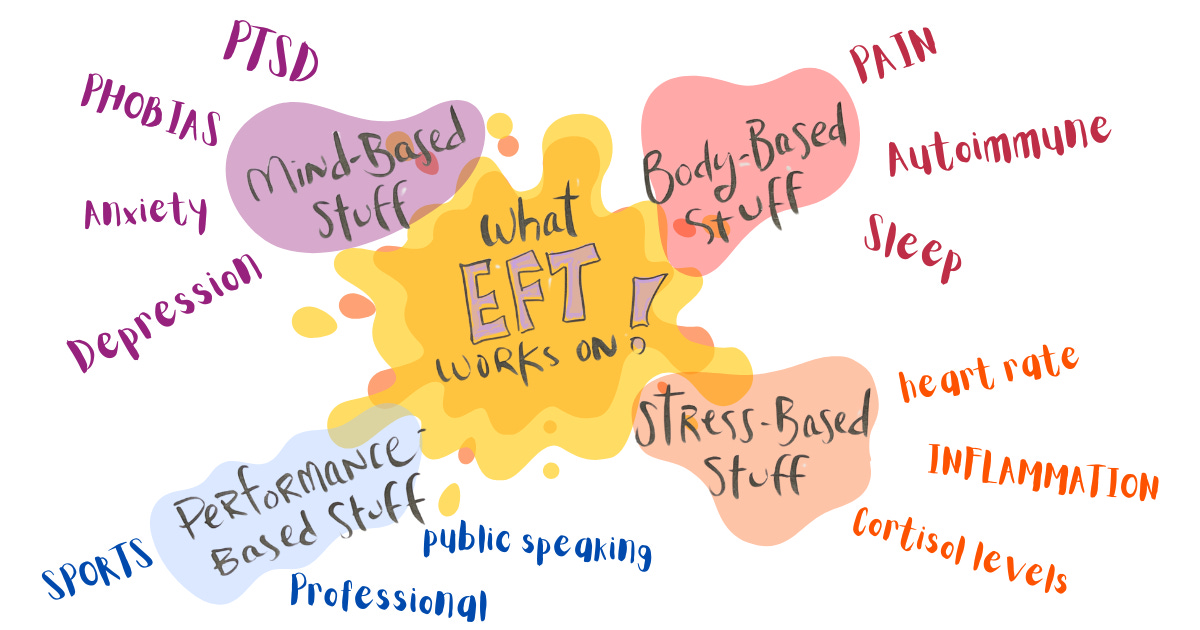 What
EFT!
WORKS ON
Mind-Based
Stuff
PTSD
PHOBIAS
Anxiety
Depression
Body-Based
Stuff
PAIN
Autoimmune
Sleep
STRESS-Based
Stuff
heart rate
INFLAMMATION
Cortisol levels
PERFORMANCE-
Based Stuff
SPORTS
public speaking
Professional